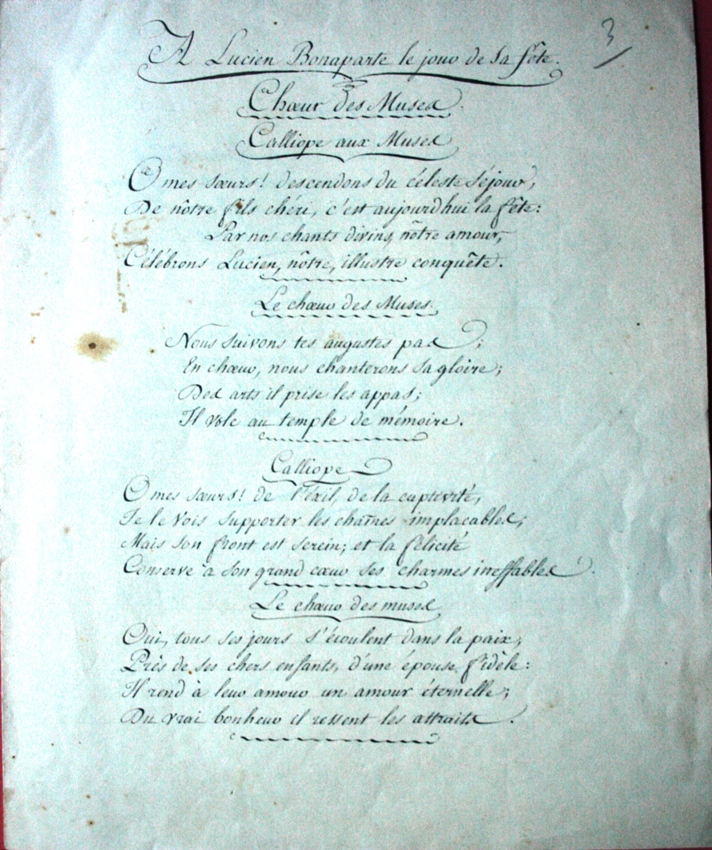 3
A Lucien Bonaparte le jour de sa fête.
Chœur des Muses.
Calliope aux Muses
O mes sœurs! descendons du céleste séjour,
De nôtre fils chéri, c'est aujourdhui la fête:
Par nos chants divins, nôtre amour,
Célébrons Lucien, nôtre, illustre conquête.
Le chœur des Muses.
Nous suivons tes augustes pas;
En chœur, nous chanterons sa gloire;
Des arts il prise les appas;
Il vole au temple de mémoire.
Calliope
O mes sœurs! de l'éxil, de la captivité,
Je le vois supporter les chaînes implacables;
Mais son front est serein; et la félicité
Conserve à son grand cœur ses charmes ineffables.
Le chœur des muses
Oui, tous ses jours s'écoulent dans la paix,
Près de ses chers enfants, d'une épouse fidèle:
Il rend à leur amour un amour éternelle;
Du vrai bonheur il ressent les attraits.